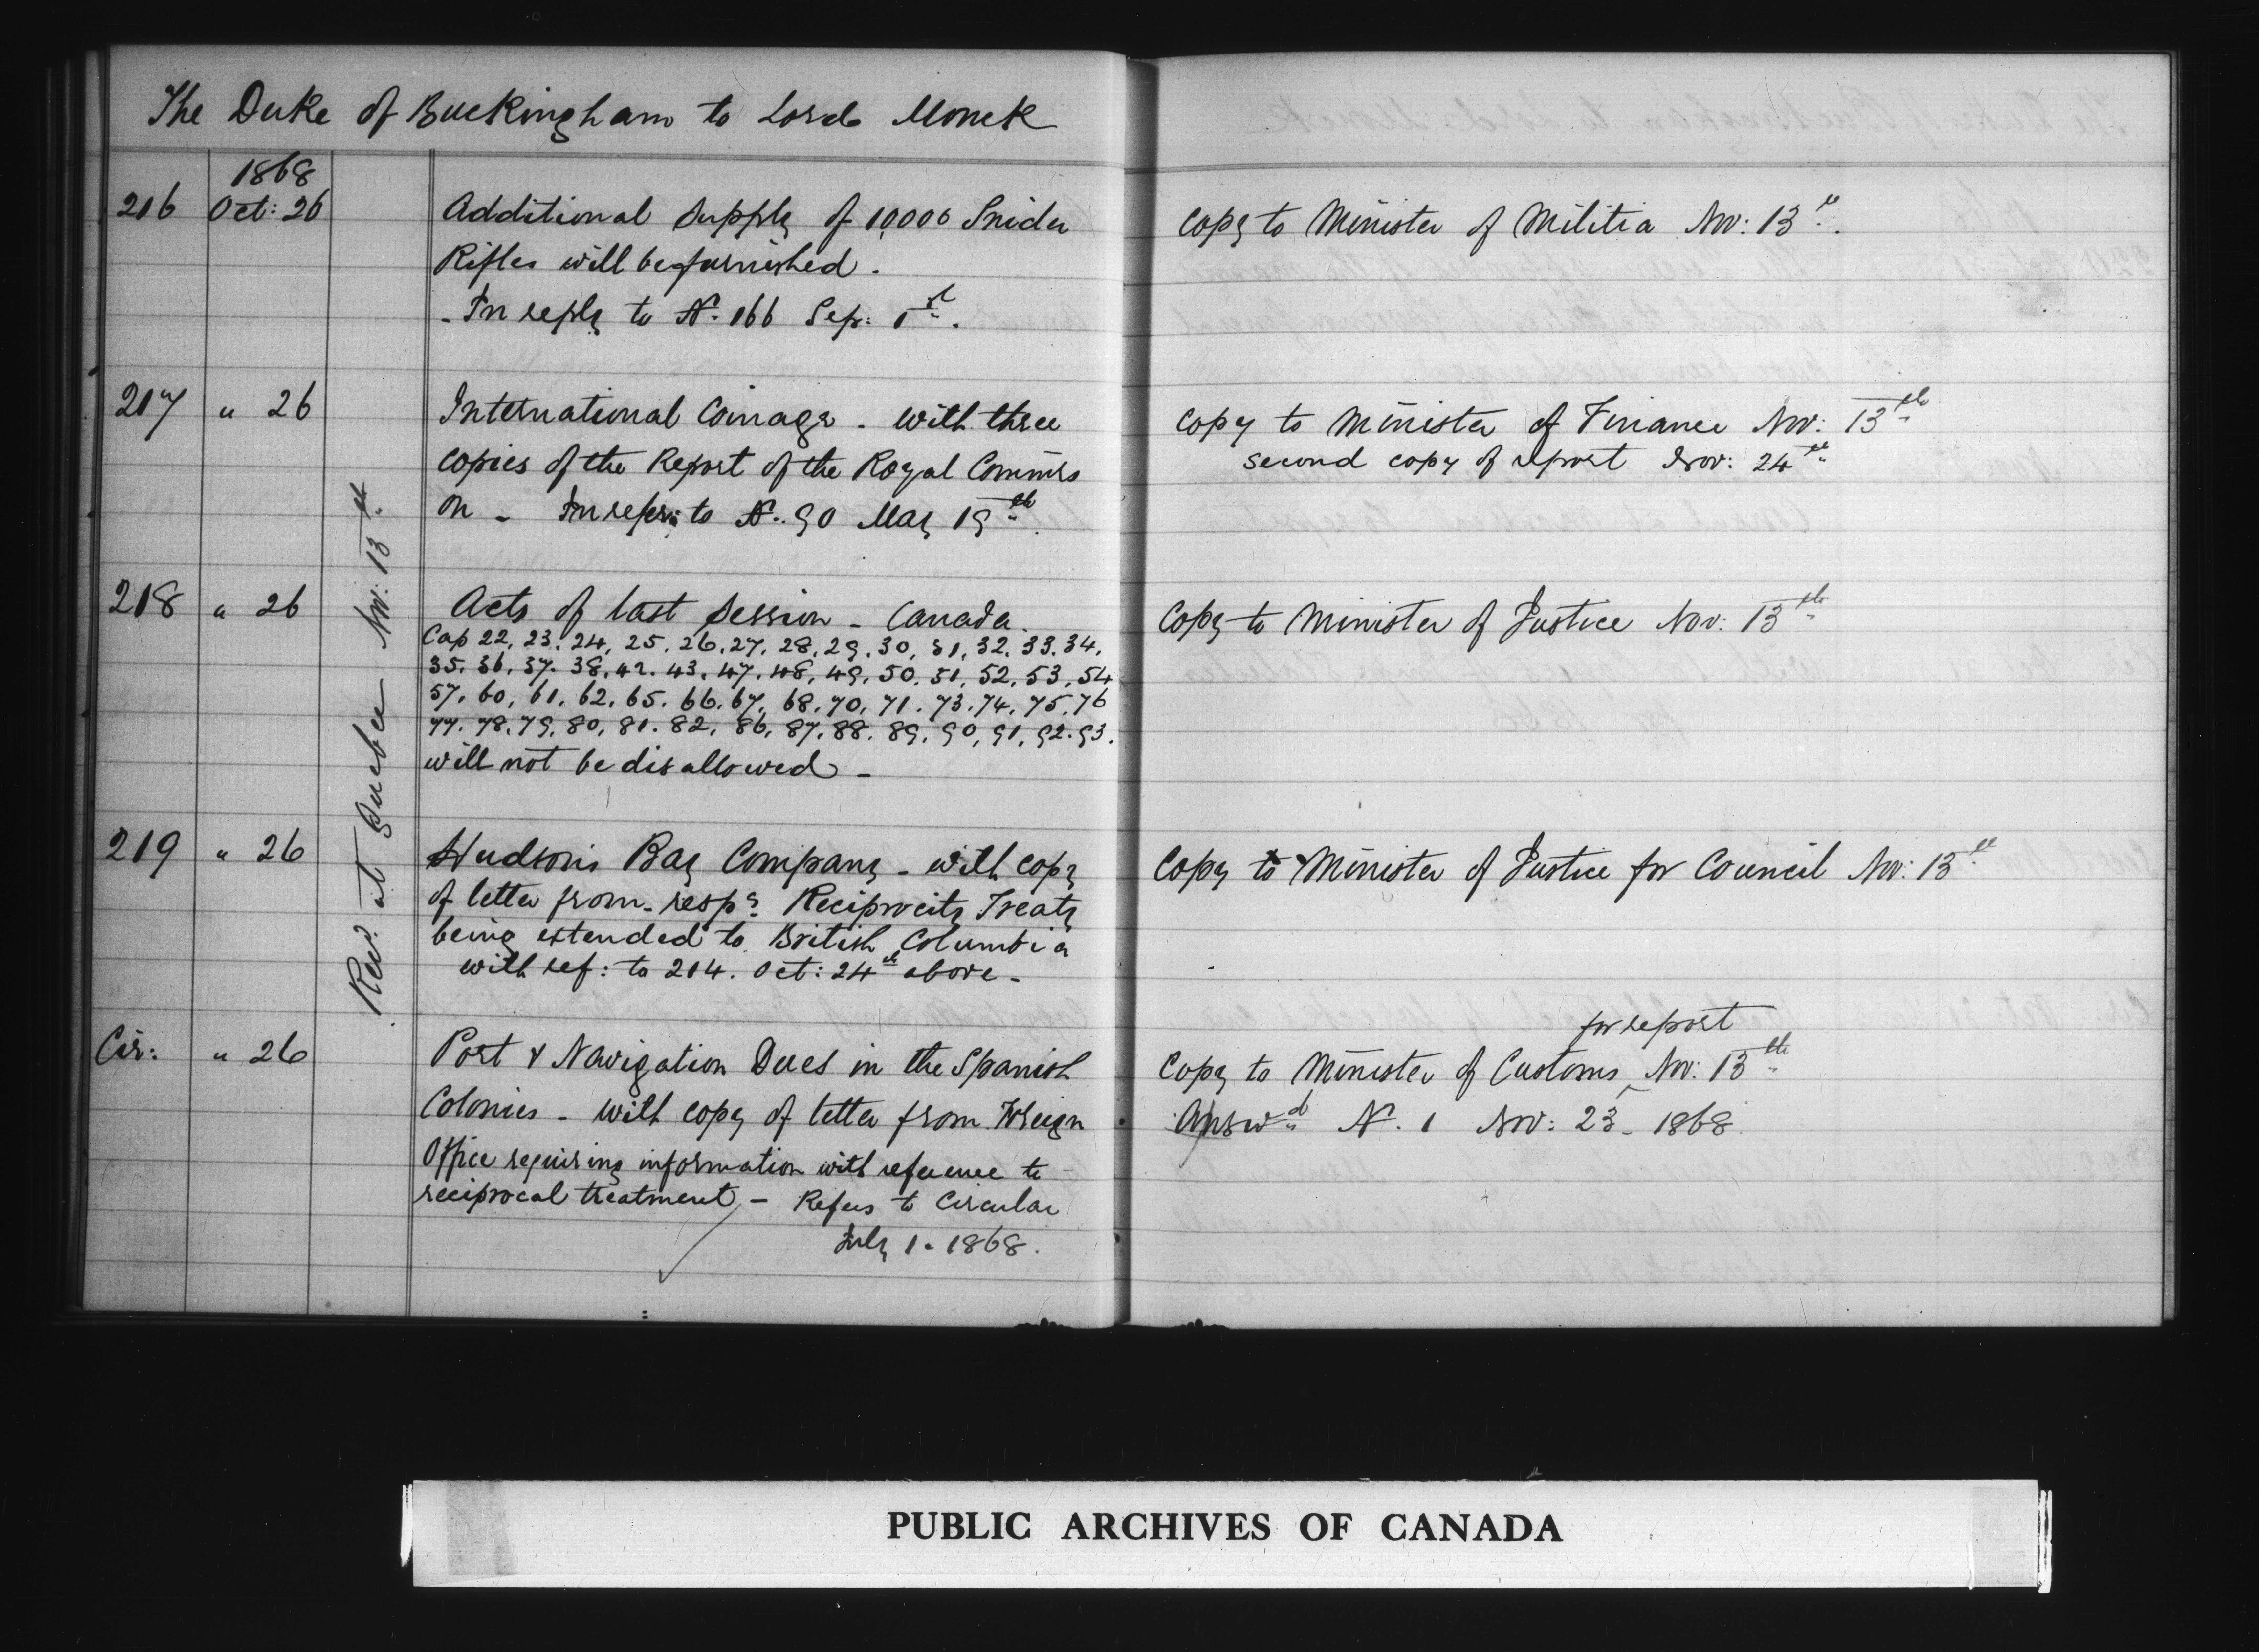 The Duke of Buckingham to Lord Monck
1868
216 Oct: 26 Additional supply of 10,000 Snider
Rifles will be furnished.
- In reply to No. 166 Sep: 1st.
Copy to Minister of Militia Nov: 13th.
217 " 26 International Coinage - with three
copies of the Report of the Royal Commiss
on - In refer: to No. 90 May 19th.
Copy to Minister of Finance Nov: 13th
second copy of report Nov: 24th
218 " 26 Acts of last Session - Canada.
Cap 22, 23, 24, 25, 26, 27, 28, 29, 30, 31, 32, 33, 34,
35, 36, 37, 38, 42, 43, 47, 48, 49, 50, 51, 52, 53, 54
57, 60, 61, 62, 65, 66, 67, 68, 70, 71, 73, 74, 75, 76
77, 78, 79, 80, 81, 82, 86, 87, 88, 89, 90, 91, 92, 93.
will not be disallowed -
Copy to Minister of Justice Nov: 13th
219 " 26 Hudson's Bay Company - with copy
of letter from - respg Reciprocity Treaty
being extended to British Columbia
with ref: to 204. Oct: 24th above -
Copy to Minister of Justice for Council Nov: 13th
Cir: " 26 Port & Navigation Dues in the Spanish
Colonies - with copy of letter from Foreign
Office requiring information with reference to
reciprocal treatment - Refers to Circular
July 1. 1868.
for report
Copy to Minister of Customs, Nov: 13th
Answd No. 1 Nov: 23 - 1868
Recd. at Quebec Nov: 13th
PUBLIC ARCHIVES OF CANADA